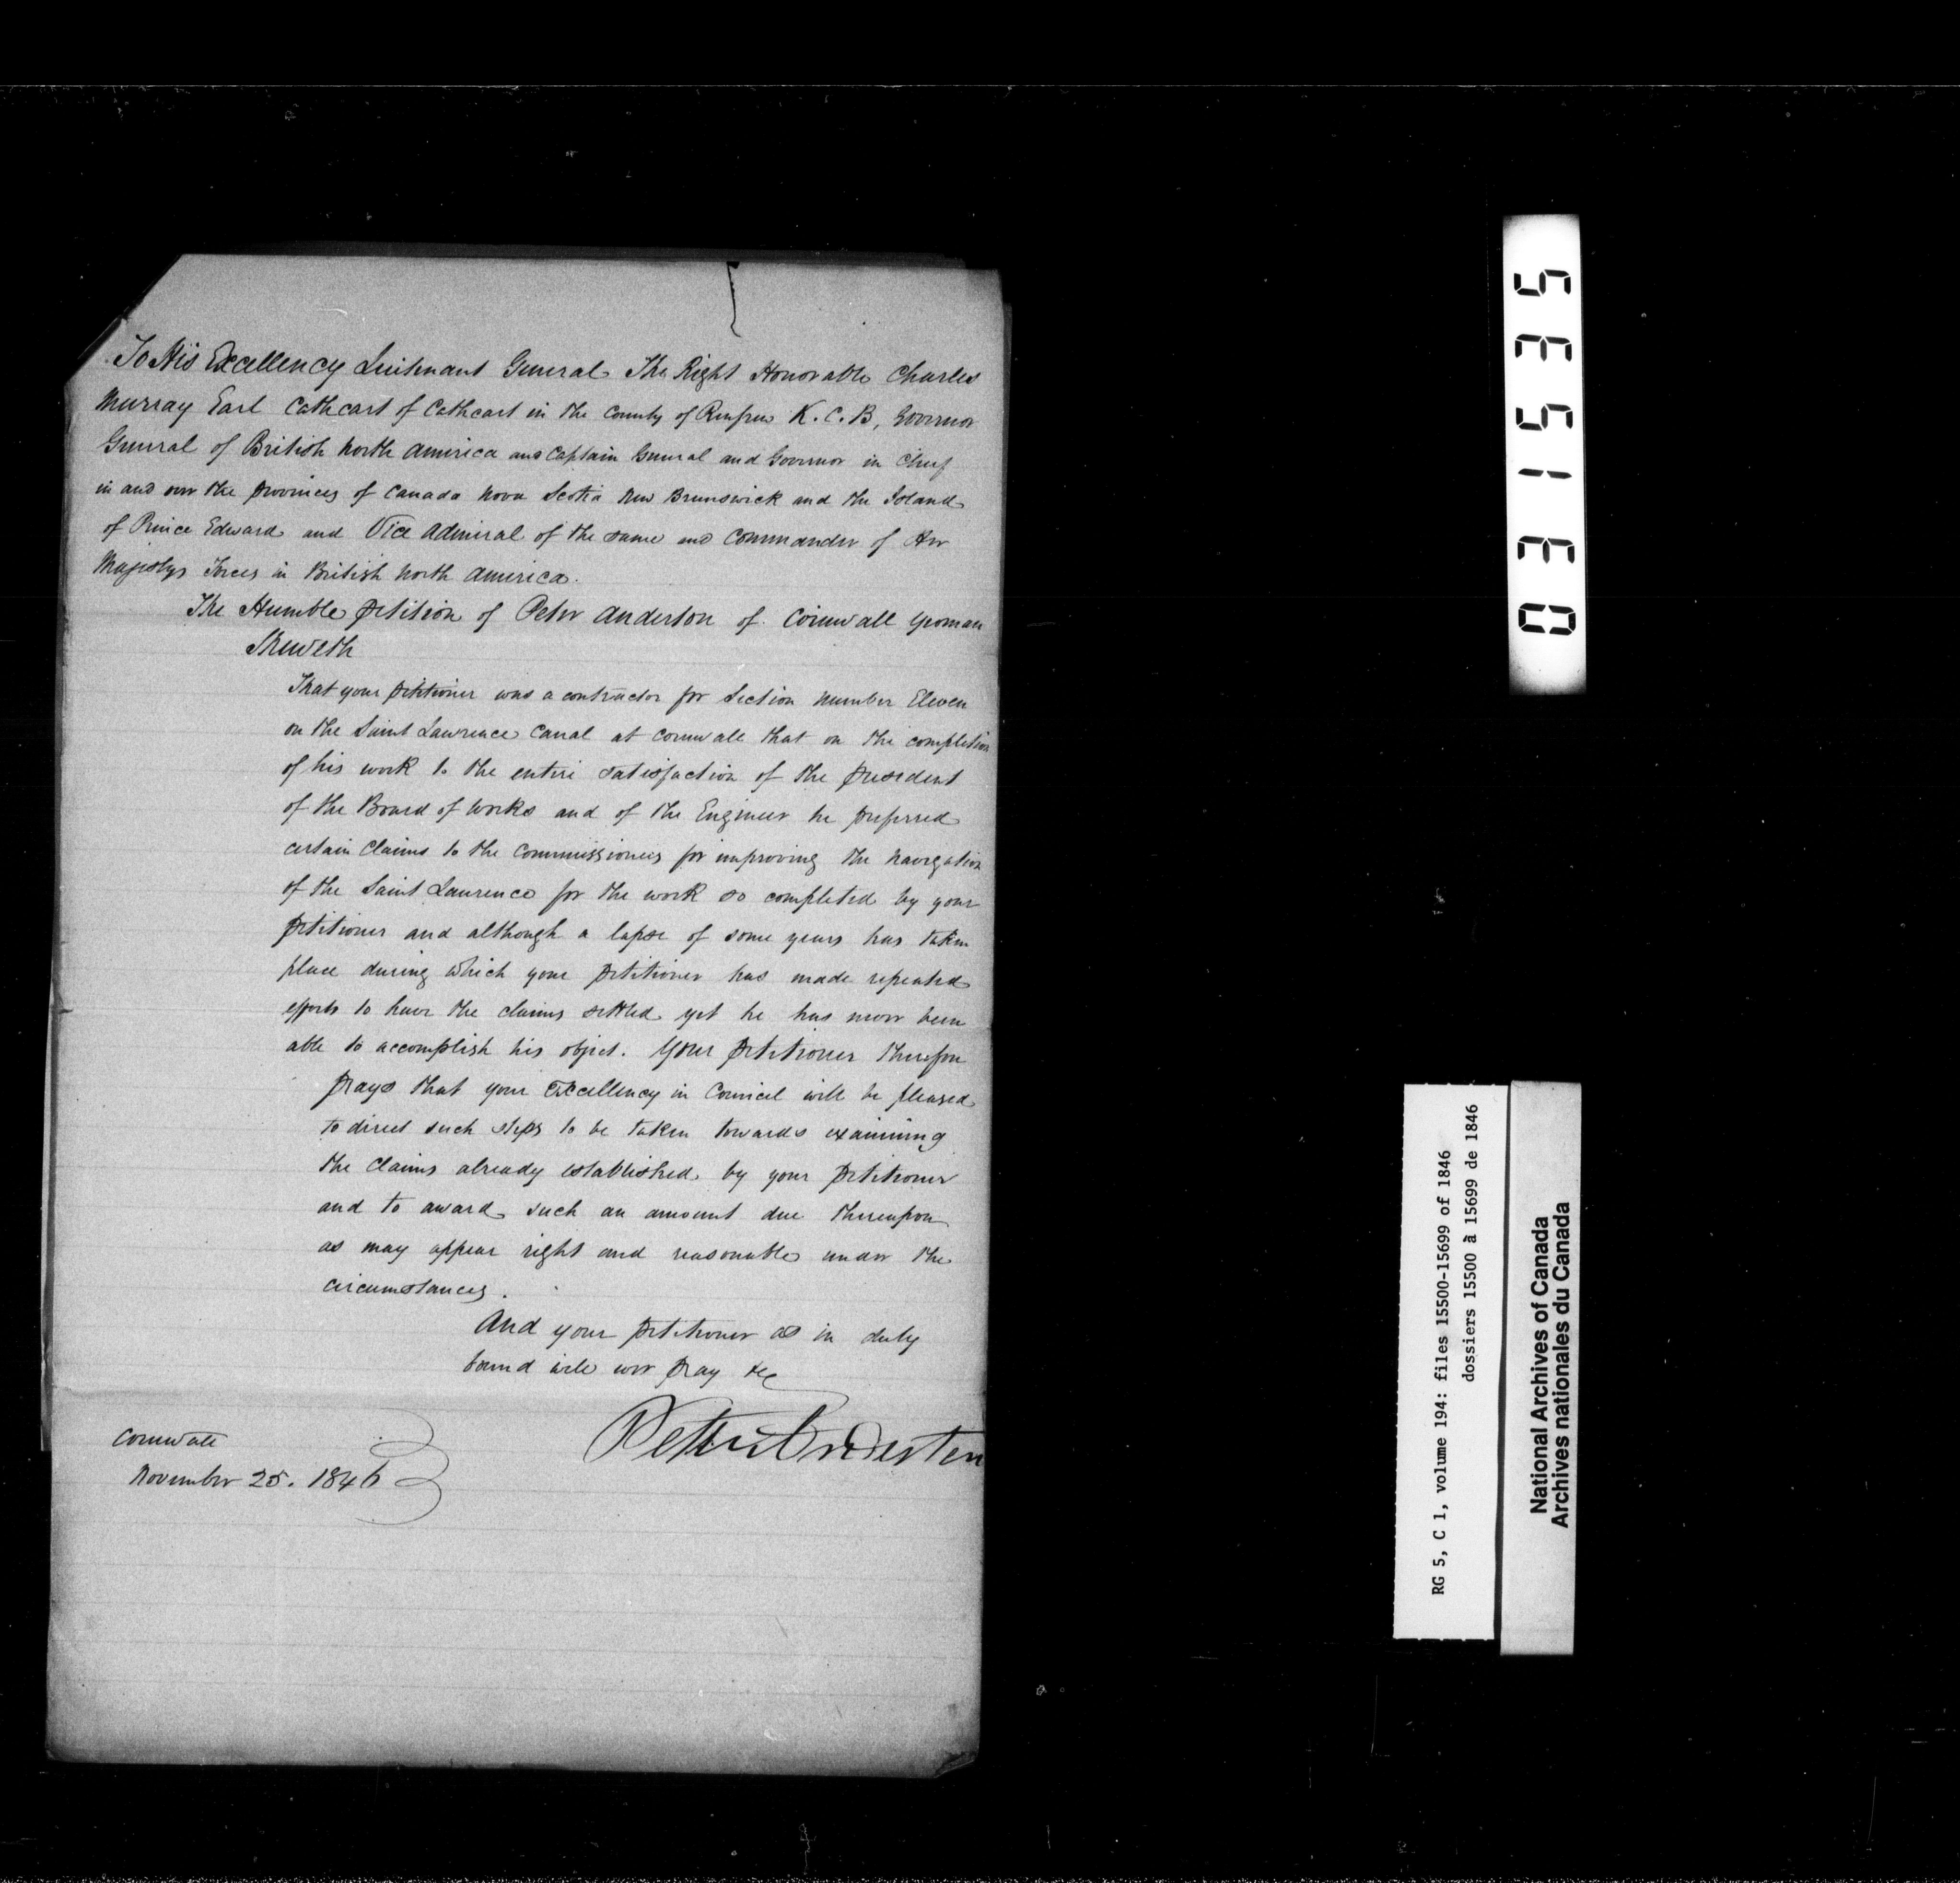 To His Excellency Lieutenant General The Right Honorable Charles
Murray Earl Cathcart of Cathcart in the County of Renfrew K.C.B, Governor
General of British North America and Captain General and Governor in Chief
in and over the provinces of Canada Nova Scotia New Brunswick and the Island
of Prince Edward and Vice Admiral of the same and Commander of Her
Majestys Forces in British North America.
The Humble petition of Peter Anderson of Cornwall Yeoman
Sheweth
That your petitioner was a contractor for Section Number Eleven
on the Saint Lawrence Canal at Cornwall that on the completion
of his work to the entire satisfaction of the president
of the Board of Works and of the Engineer he preferred
certain claims to the Commissioners for improving the navigation
of the Saint Laurence for the work so completed by your
petitioner and although a lapse of some years has taken
place during which your petitioner has made repeated
efforts to have the claims settled yet he has never been
able to accomplish his object. Your petitioner therefore
prays that your Excellency in Council will be pleased
to direct such steps to be taken towards examining
the claims already established by your petitioner
and to award such an amount due thereupon
as may appear right and reasonable under the
circumstances.
And your petitioner as in duty
bound will ever pray &c
Peter Anderson
Cornwall
November 25. 1846
031535
RG 5, C 1, volume 194: files 15500-15699 of 1846
dossiers 15500 à 15699 de 1846
National Archives of Canada
Archives nationales du Canada